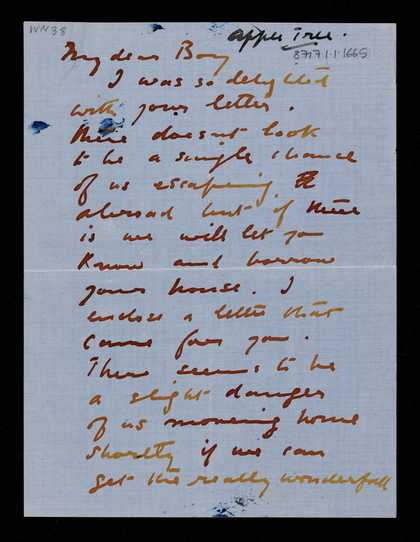 WN38
apple Tree.
8717.1.1.1665
My dear Boy
I was so delighted
with your letter.
There doesnt look
to be a single chance
of us escaping
abroad but if there
is we will let you
know and borrow
your house. I
enclose a letter that
came for you.
There seems to be
a slight danger
of us moving home
shortly if we can
get the really wonderfull